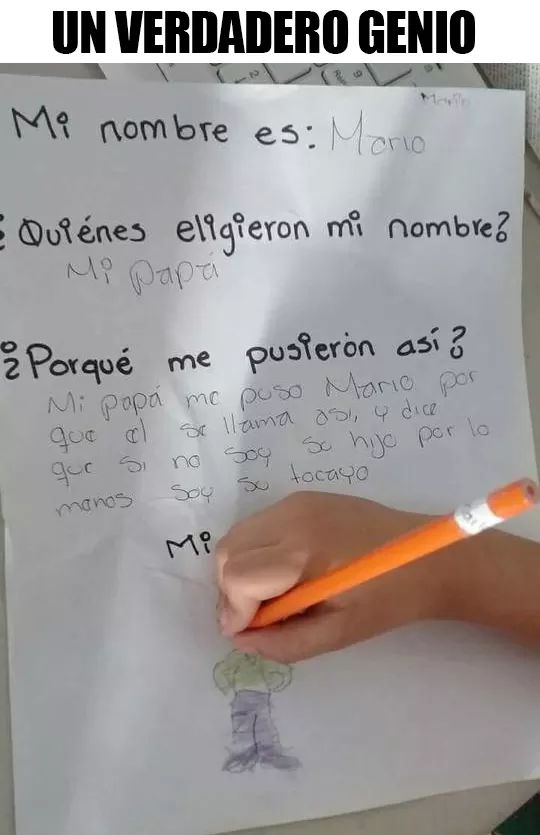 UN VERDADERO GENIO
Mario
Mi nombre es: Mario
¿Quiénes eligieron mi nombre?
Mi papá
¿Porqué me pusierón así?
Mi papá me puso Mario por
que el se llama así, y dice
que si no soy su hijo por lo
manos soy su tocayo
Mi